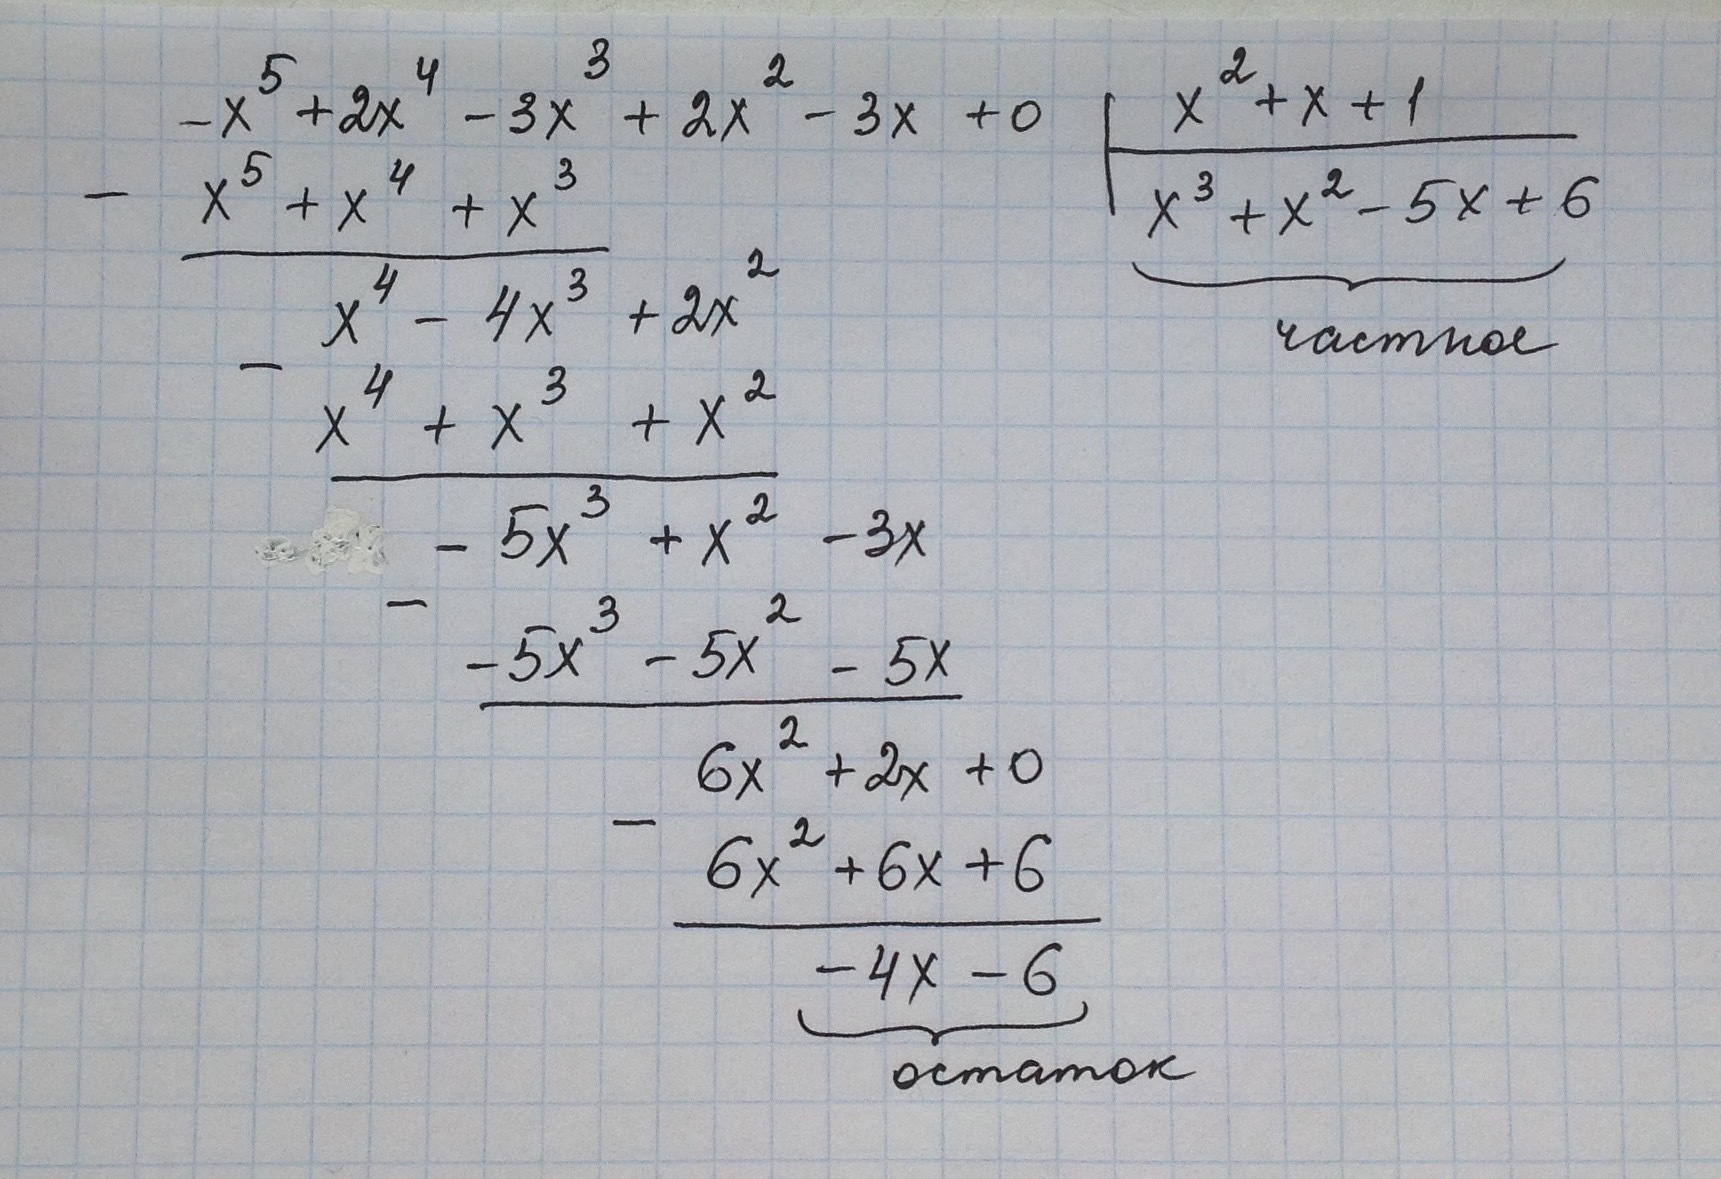 -x⁵ + 2x⁴ - 3x³ + 2x² - 3x + 0 | x² + x + 1
- x⁵ + x⁴ + x³ | x³ + x² - 5x + 6
x⁴ - 4x³ + 2x²
частное
- x⁴ + x³ + x²
- 5x³ + x² - 3x
- -5x³ - 5x² - 5x
6x² + 2x + 0
- 6x² + 6x + 6
-4x - 6
остаток